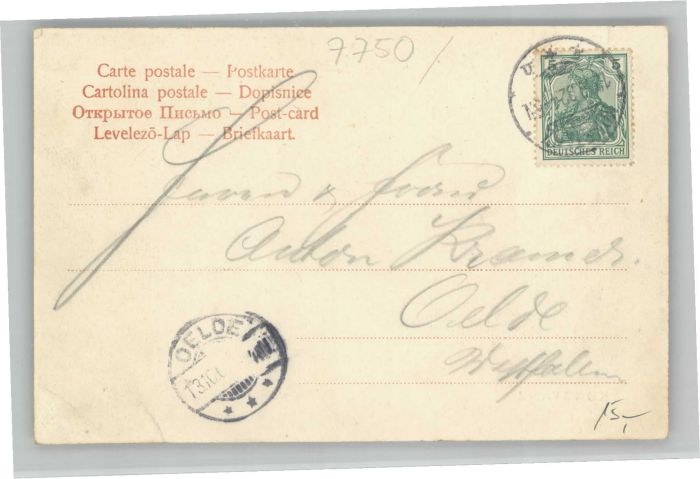 7.750/
Carte postale — Postkarte
Cartolina postale — Dopisnice
Открытое Письмо — Post-card
Levelezõ-Lap — Briefkaart.
5 5
DEUTSCHES REICH
& Frau
Anton Kramer.
Oelde
Westfalen
OELDE
15,-